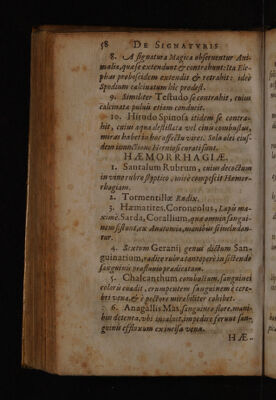 58 DE SIGNATVRIS
8. A signatura Magica obseruentur Ani-
malia, quæ se extendunt & contrahunt: Ita Ele-
phas proboscidem extendit & retrahit: ideò
Spodium calcinatum hic prodest.
9. Similiter Testudo se contrahit, cuius
calcinata puluis etiam conducit.
10. Hirudo Spinosa itidem se contra-
hit, cuius aqua destillata vel cinis combustus,
miras habet in hoc affectu vires. Solo olei eius-
dem inunctione Herniosi curati sunt.
HÆMORRHAGIÆ.
1. Santalum Rubrum, cuius decoctum
in vino rubro styptico, mirè compescit Hæmor-
rhagiam.
2. Tormentillæ Radix.
3. Hæmatites, Coroneolus, Lapis ma-
ximè, Sarda, Corallium, quæ omnia sangui-
nem sistunt, ex Anatomia, manibus si includan-
tur.
4. Sextum Geranij genus dictum San-
guinarium, radice rubra tantoperè in sistendo
sanguinis profluuio prædicatum.
5. Chalcanthum combustum, sanguinei
coloris euadit, erumpentem sanguinem è cere-
bri vena, & è pectore mirabiliter cohibet.
6. Anagallis Mas, sanguineo flore, mani-
bus detenta, vbi incaluit, impedire ferunt san-
guinis effluxum ex incisa vena.
HÆ-